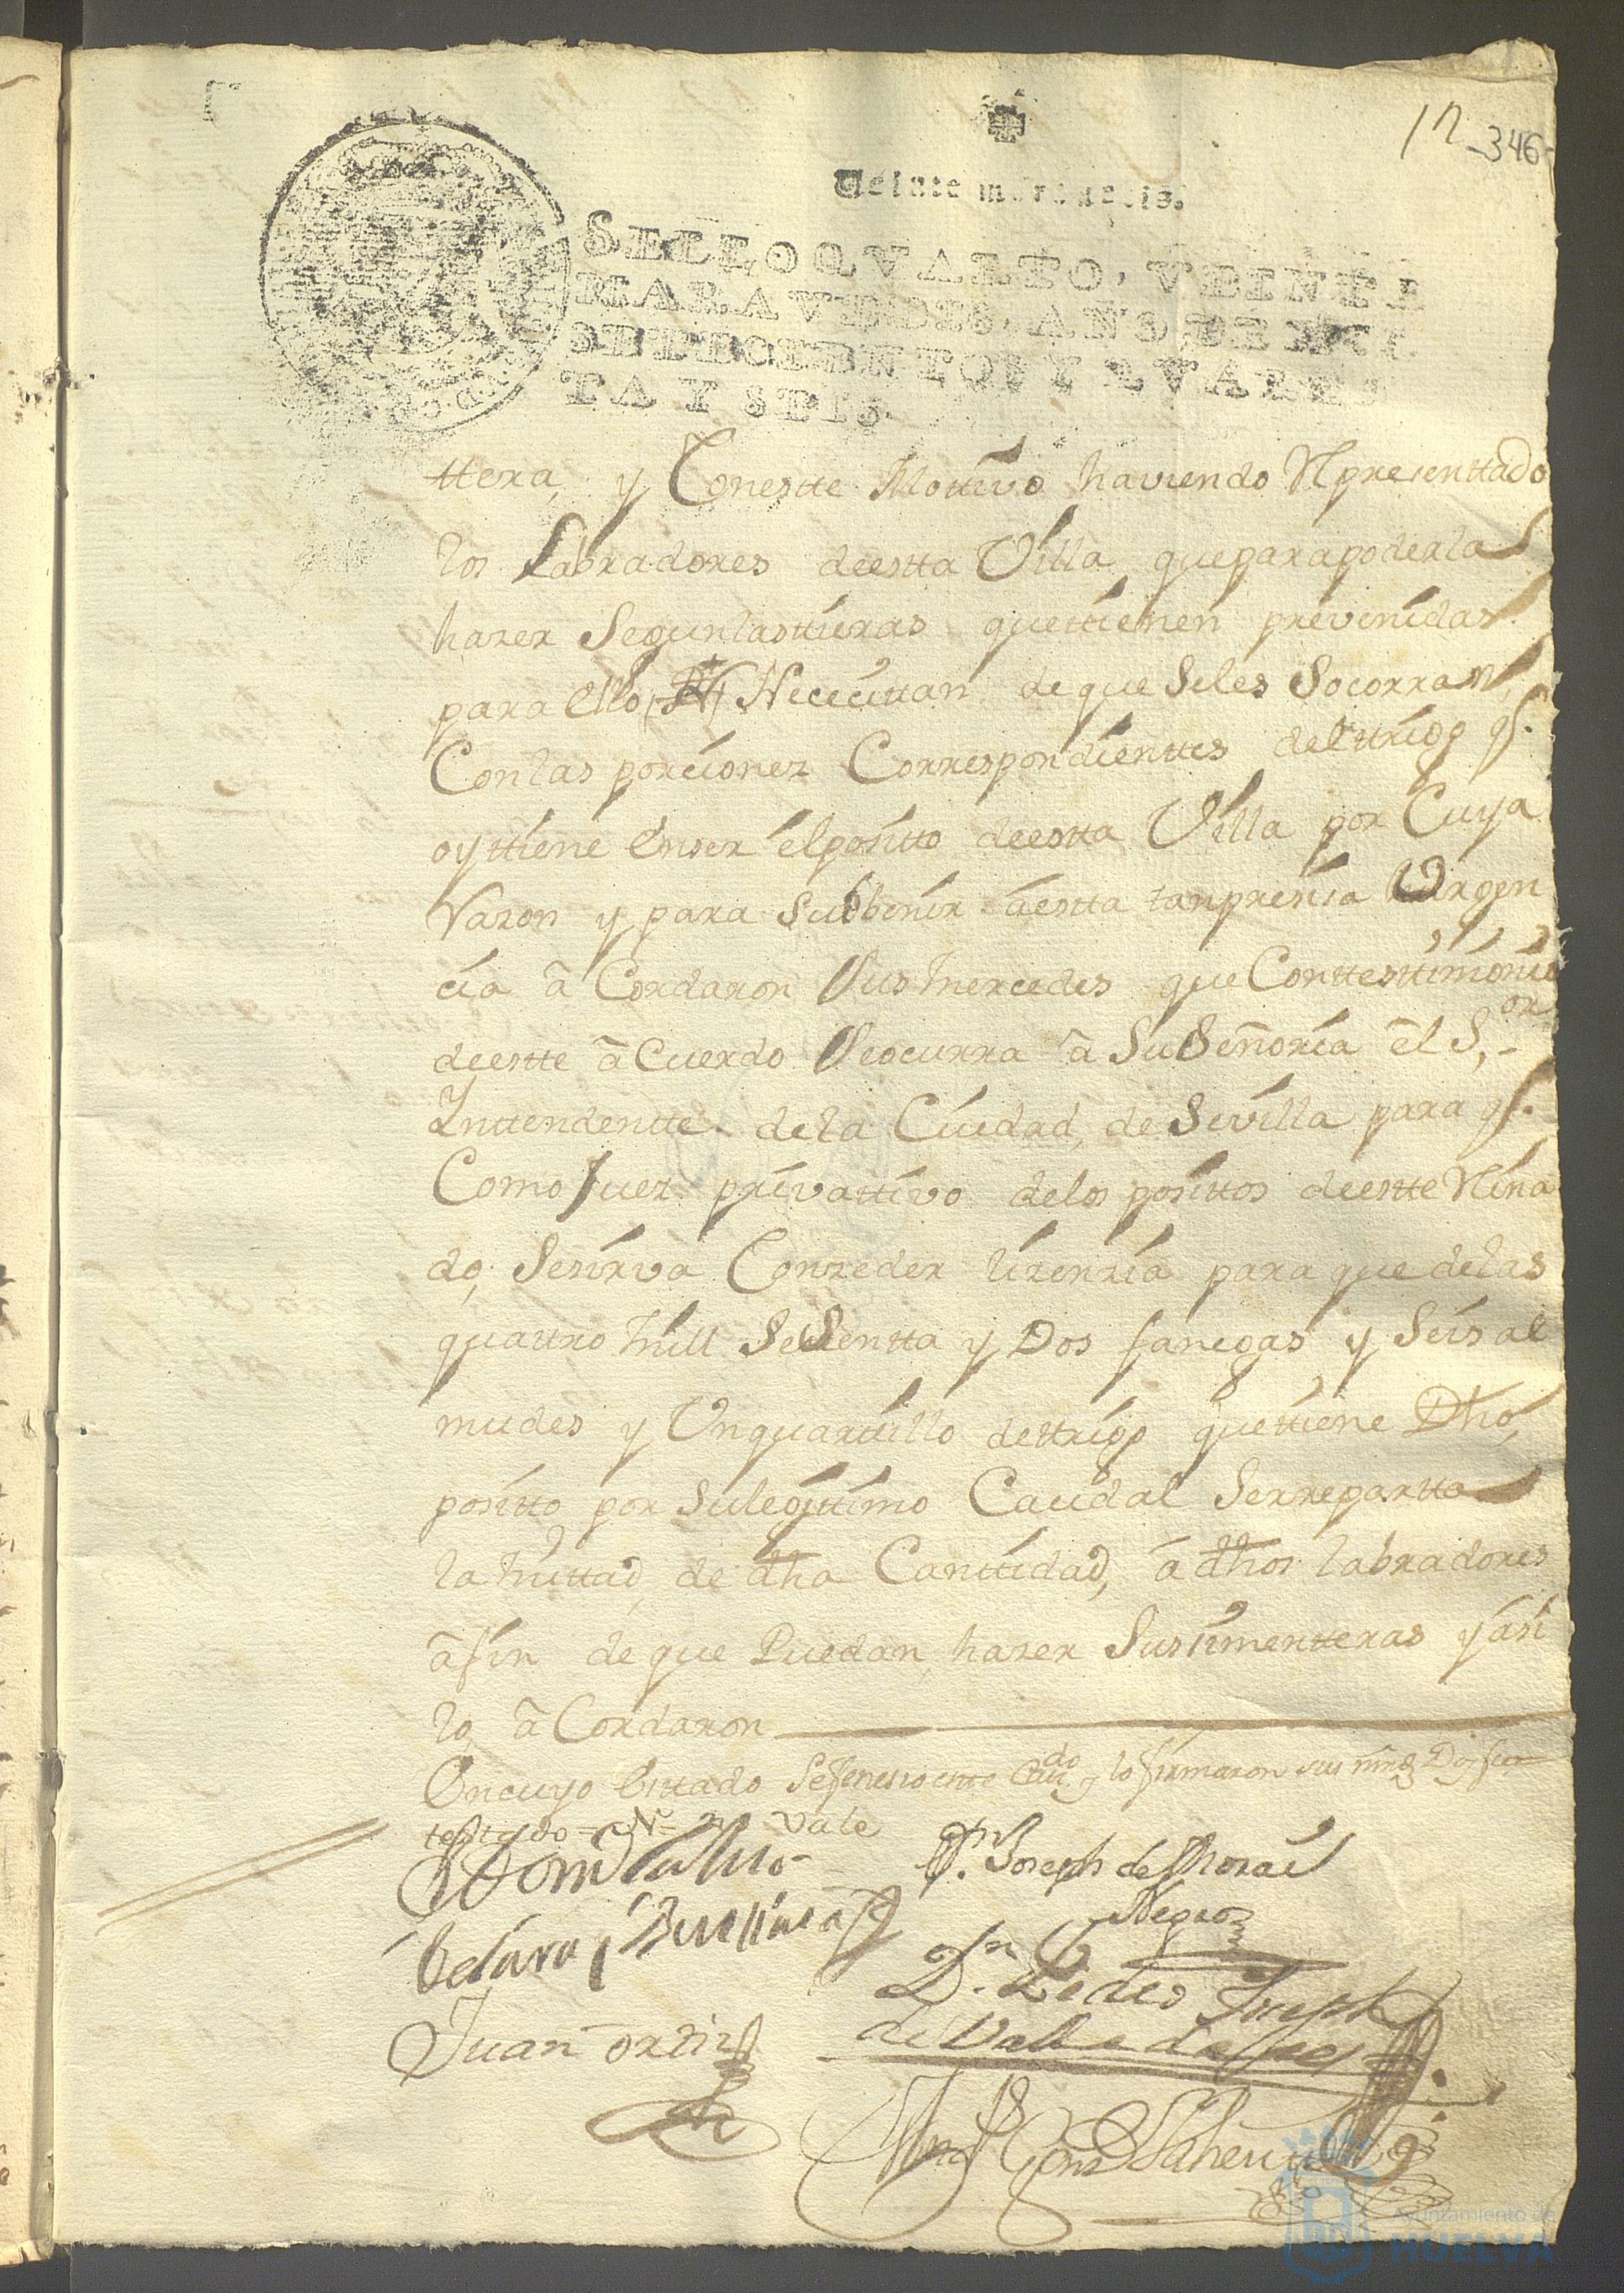 12 -346-
Veinte maravedis.
SELLO QVARTO, VEINTE
MARAVEDIS, AÑO DE MIL
SETECIENTOS Y QVAREN
TA Y SEIS.
ttera, y Conestte Mottivo haviendo Rpresenttado
los Labradores deestta Villa, queparapoderlas
hazer Segunlasttieras quettienen prevenidas
para ello, Nececittan de que Seles Socorran,
Conlas porcionez Correspondienttes deltrigo qe.
oyttiene enser elposito deestta Villa por Cuya
Razon y para Subbenir âestta tanpresisa Urgen
cia â Cordaron Susmercedes que Conttesttimonio
deestte âCuerdo Seocurra â SuSeñoria êl S.or
Ynttendentte de la Ciudad, de Sevilla para qe.
Como Juez privattivo delos posittos deestte Reina
do, Sesirva Conzeder lizenzia para que delas
quattro mill Sesentta y Dos fanegas y Seis al
mudes y Unquartillo dettrigo quettiene Dho,
positto por Sulegittimo Caudal Serrepartta
la mittad, de dha Canttidad, â dhos labradores
âfin de que Puedan, hazer Sussimentteras yasi
lo, â Cordaron
Encuyo Esttado Sefenesio este Cav.do y lo firmaron sus mrds Doi fee
testado = N = no Vale
Dn. Joseph de Moral
Negro
Juan ortiz
Dn. Pedro Joseph
de
Ayuntamiento de
HUELVA